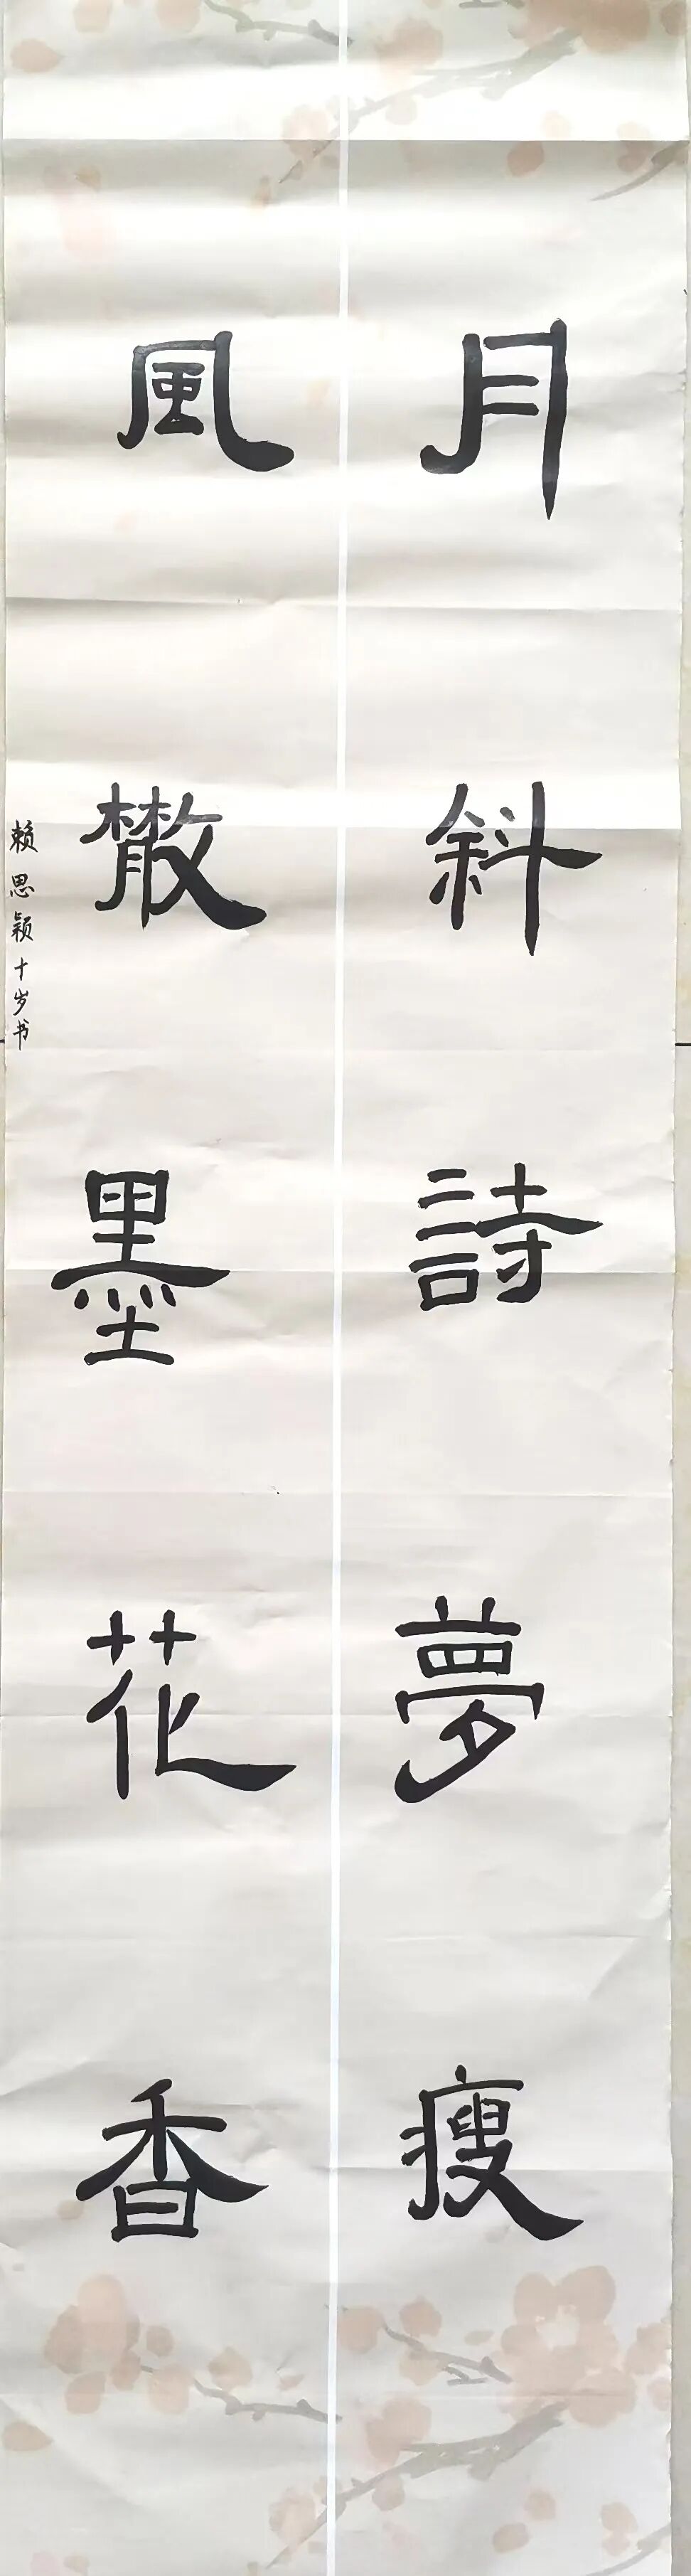 月斜詩夢瘦
風散墨花香
赖思颖十岁书